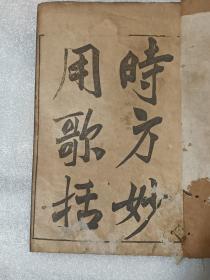 時方妙
用歌括